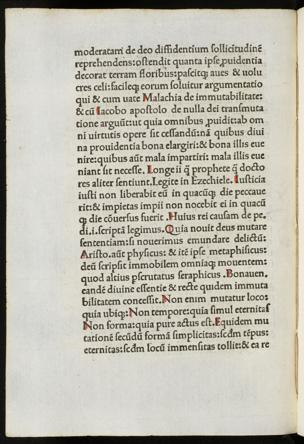 moderatam̃ de deo diffidentium sollicitudinẽ
reprehendens: ostendit quanta ipse ꝓuidentia
decorat terram floribus: pascitqꝫ aues & volu
cres celi: facileqꝫ eorum soluitur argumentatio
qui & cum vate Malachia de immutabilitate:
& cũ Iacobo apostolo de nulla dei transmuta
tione arguũtut quia omnibus ꝓuidit: ab om
ni virtutis opere sit cessandũ: nã quibus diui
na prouidentia bona elargiri: & bona illis eue
nire: quibus aũt mala impartiri: mala illis eue
niant sit necesse. Longe ii qͥ prophetẽ qͥ docto
res aliter sentiunt. Legite in Ezechiele. Iusticia
iusti non liberabit eũ in quacũqꝫ die peccaue
rit: & impietas impii non nocebit ei in quacũ
qꝫ die cõuersus fuerit. Huius rei causam de pe.
di.i.scriptã legimus. Quia nouit deus mutare
sententiam: si nouerimus emundare delictũ:
Aristo. aũt physicus: & itẽ ipse metaphisicus:
deũ scripsit immobilem omniaqꝫ mouentem:
quod altius ꝑscrutatus seraphicus. Bonauen.
eandẽ diuine essentie & recte quidem immuta
bilitatem concessit. Non enim mutatur loco:
quia ubiqꝫ: Non tempore: quia simul eternitas
Non forma: quia pure actus est. Equidem mu
tationẽ secũdũ formã simplicitas: scdm tẽpus:
eternitas: scdm locũ immensitas tollit: & ea re